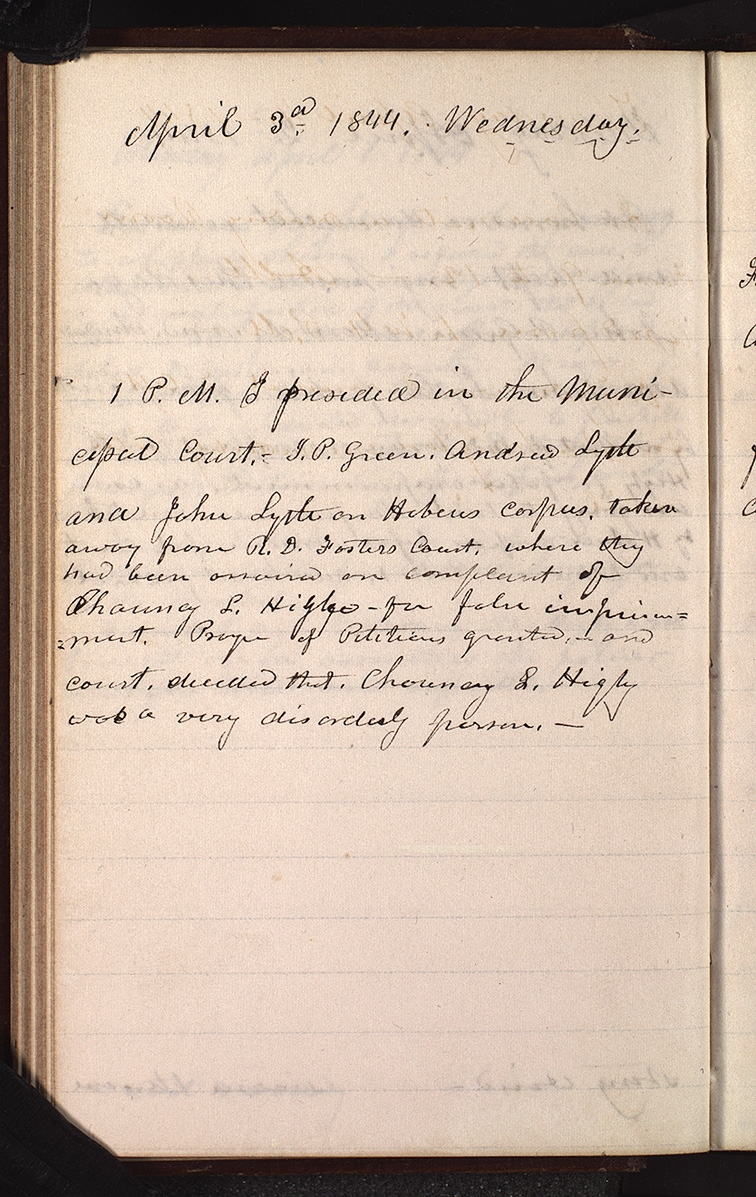 April 3d 1844. Wednesday.
1 P. M. I presided in the Muni-
cipal Court.- J. P. Green. Andrew Lytle
and John Lytle on Habeus corpus. taken
away from R. D. Fosters Court. where they
had been arraind on complaint of
Chauncy L. Higbe - for false imprison=
=ment. Prayer of Petitions granted,- and
court. decided that. Chauncy L. Higby
was a very disorderly person. —